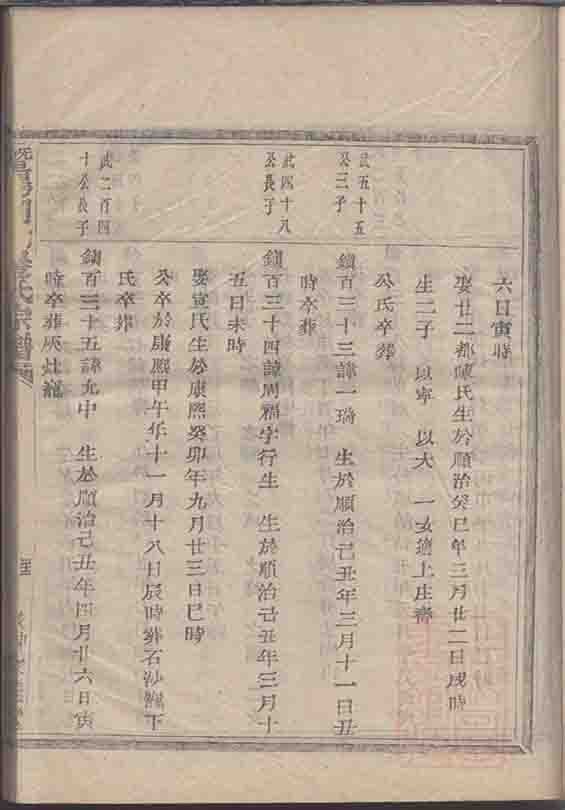 六日寅時
娶廿二都陳氏生於順治癸巳年三月廿二日戌時
生二子 以寧 以大 一女適上庄
公氏卒葬
武五十五公三子
鎖百三十三諱一瑞 生於順治己丑年三月十一日丑
時卒葬
武四十八公長子
鎖百三十四諱周福字行生 生於順治己丑年三月十
五日未時
娶宣氏生於康熙癸卯年九月廿三日巳時
公卒於康熙甲午年十一月十八日辰時葬石沙下
氏卒葬
武二百四十公長子
鎖百三十五諱九中 生於順治己丑年四月廿六日寅
時卒葬灰灶龍
氏宗譜